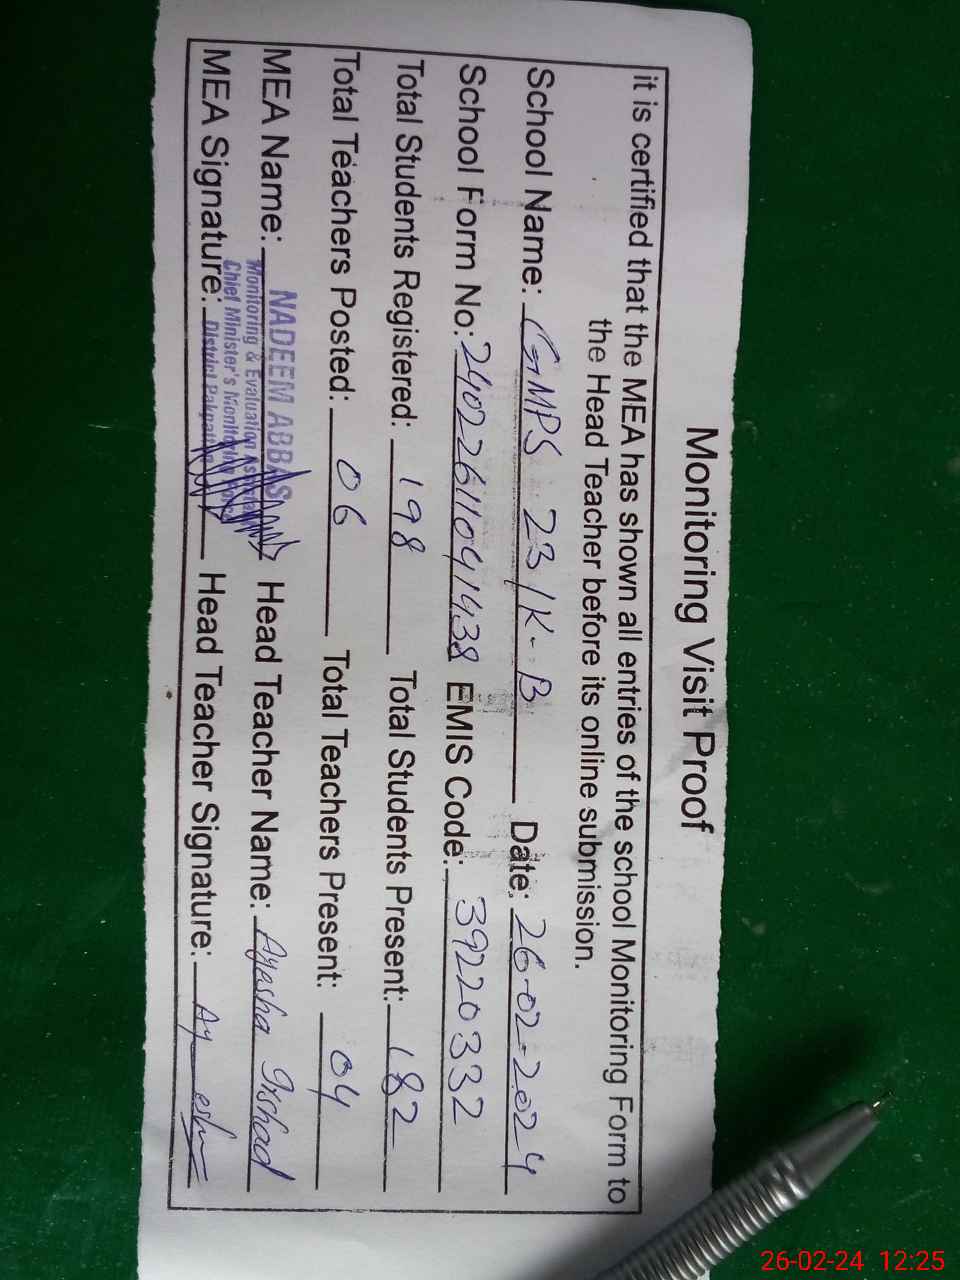 Monitoring Visit Proof
it is certified that the MEA has shown all entries of the school Monitoring Form to
the Head Teacher before its online submission.
School Name: GMPS 23/K-B Date: 26-02-2024
School Form No: 24022611041438 EMIS Code: 39220332
Total Students Registered: 198 Total Students Present: 182
Total Teachers Posted: 06 Total Teachers Present: 04
MEA Name: NADEEM ABBAS Head Teacher Name: Ayesha Irshad
Monitoring & Evaluation Assistant
Chief Minister's Monitoring Force
District Pakpattan
MEA Signature: Head Teacher Signature:
26-02-24 12:25